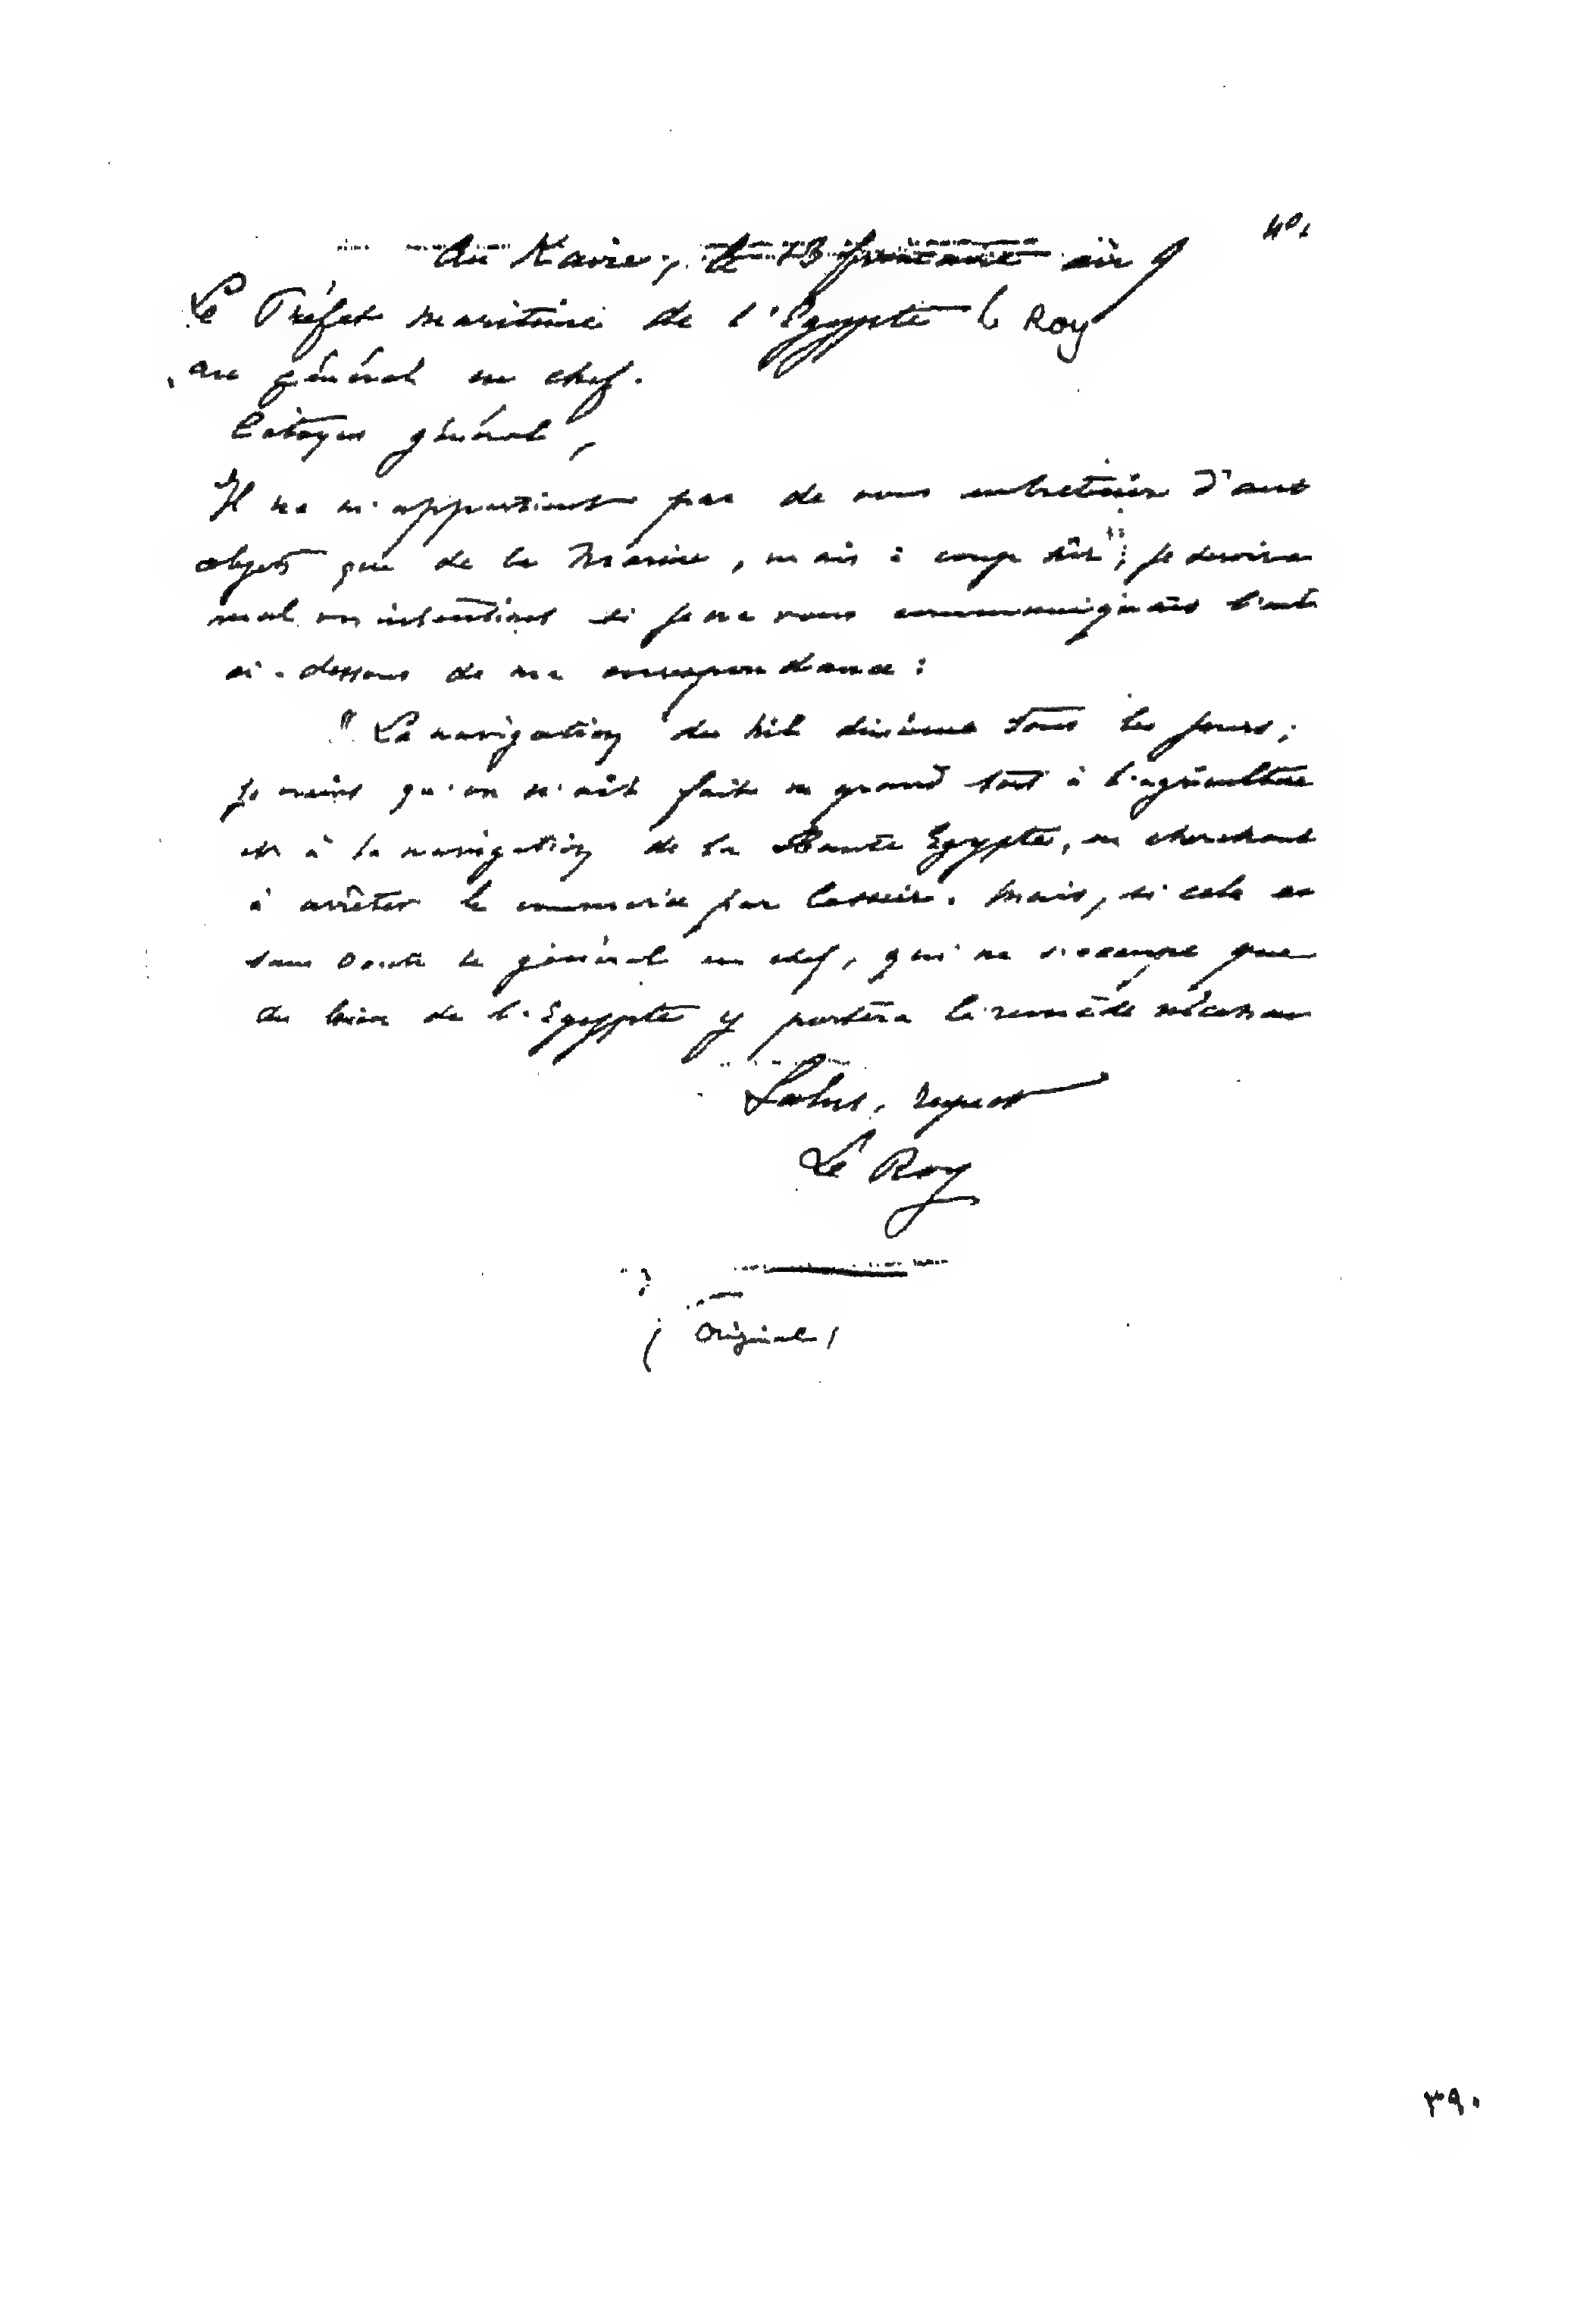 Au Kaire, le 13 frimaire an 9
Le Préfet maritime de l'Egypte le Roy
au général en chef.
Citoyen général,
Il ne m'appartient pas de vous entretenir d'aut
objets que de la Marine, mais à coup sûr, je
mal intentions si je ne vous communiquais
ci-dessous de ma correspondance :
"La navigation du Nil diminue tous les jours ;
je crains qu'on n'ait fait un grand tort à l'agriculture
et à la navigation de la Haute Egypte, en cherchant
à arrêter le commerce par Cosseir. Mais, si cela es
sans doute le général en chef, qui ne s'occupe que
du bien de l'Egypte y portera le remède nécessai
Salut, respect
Le Roy
(Original)
٣٩٠